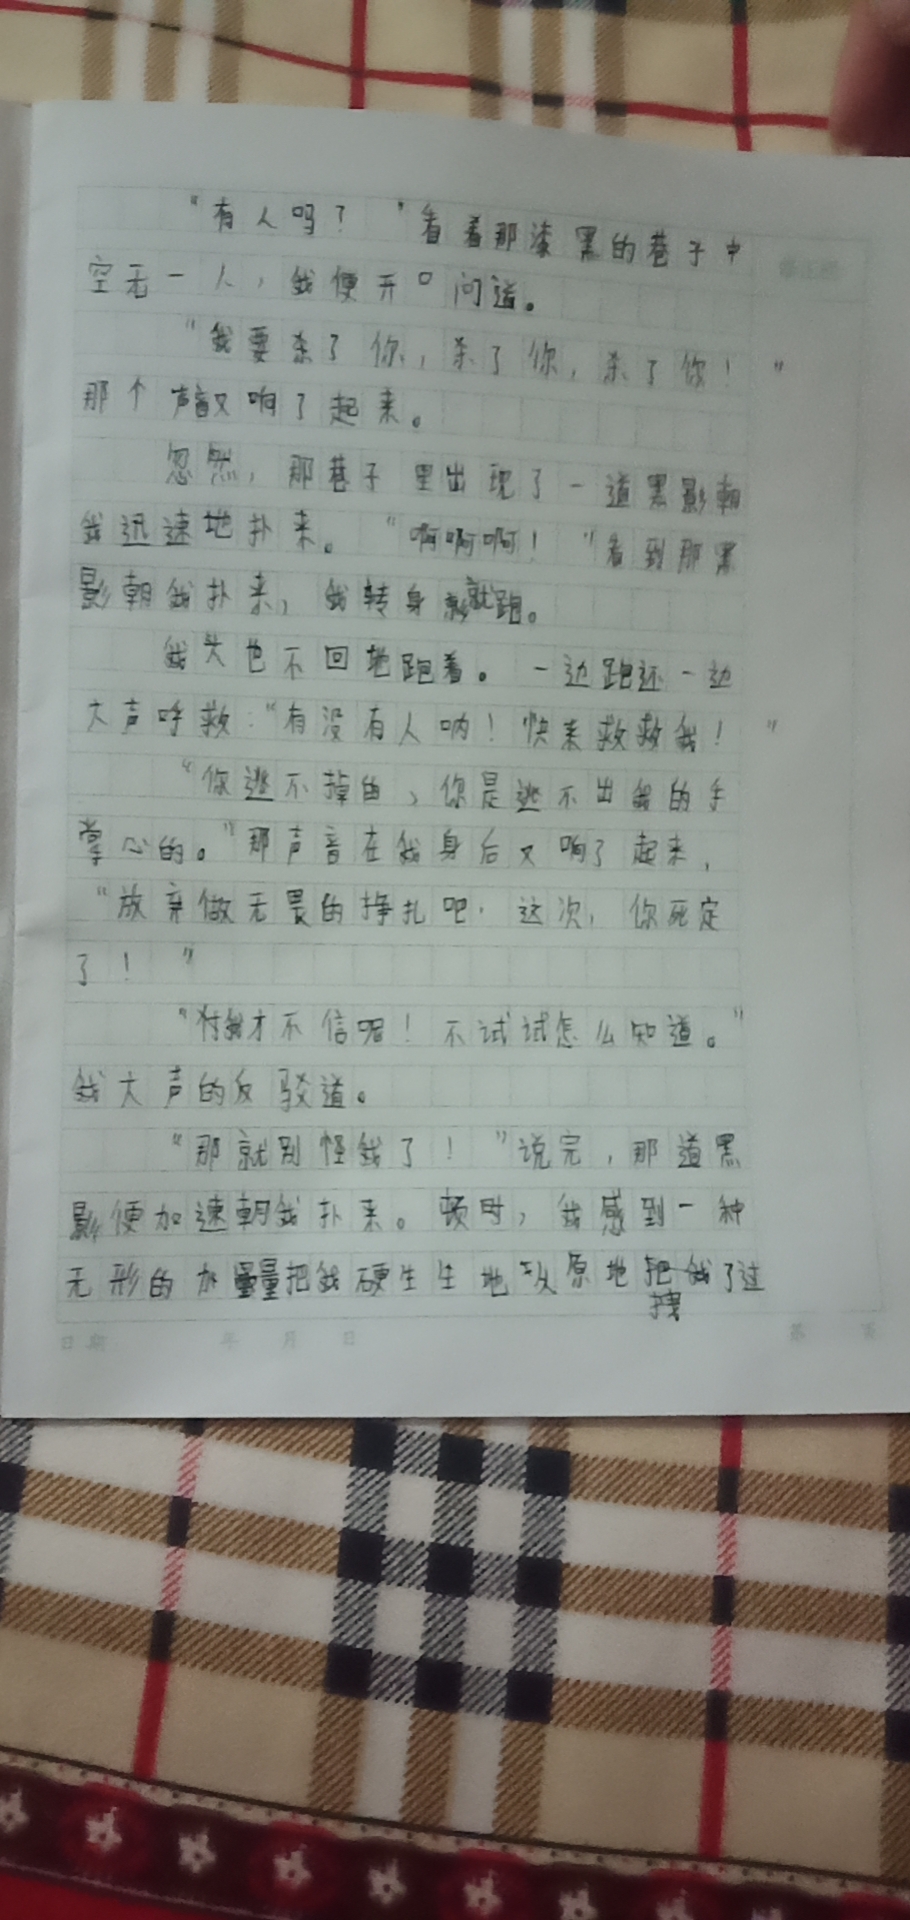 “有人吗？”看着那漆黑的巷子中
空无一人，我便开口问道。
“我要杀了你，杀了你，杀了你！”
那个声音又响了起来。
忽然，那巷子里出现了一道黑影朝
我迅速地扑来。“啊啊啊！”看到那黑
影朝我扑来，我转身就跑。
我头也不回地跑着。一边跑还一边
大声呼救：“有没有人呐！快来救救我！”
“你逃不掉的，你是逃不出我的手
掌心的。”那声音在我身后又响了起来，
“放弃做无畏的挣扎吧。这次，你死定
了！”
“我才不信呢！不试试怎么知道。”
我大声的反驳道。
“那就别怪我了！”说完，那道黑
影便加速朝我扑来。顿时，我感到一种
无形的力量把我硬生生地从原地拽了过
日期 年 月 日 第 页